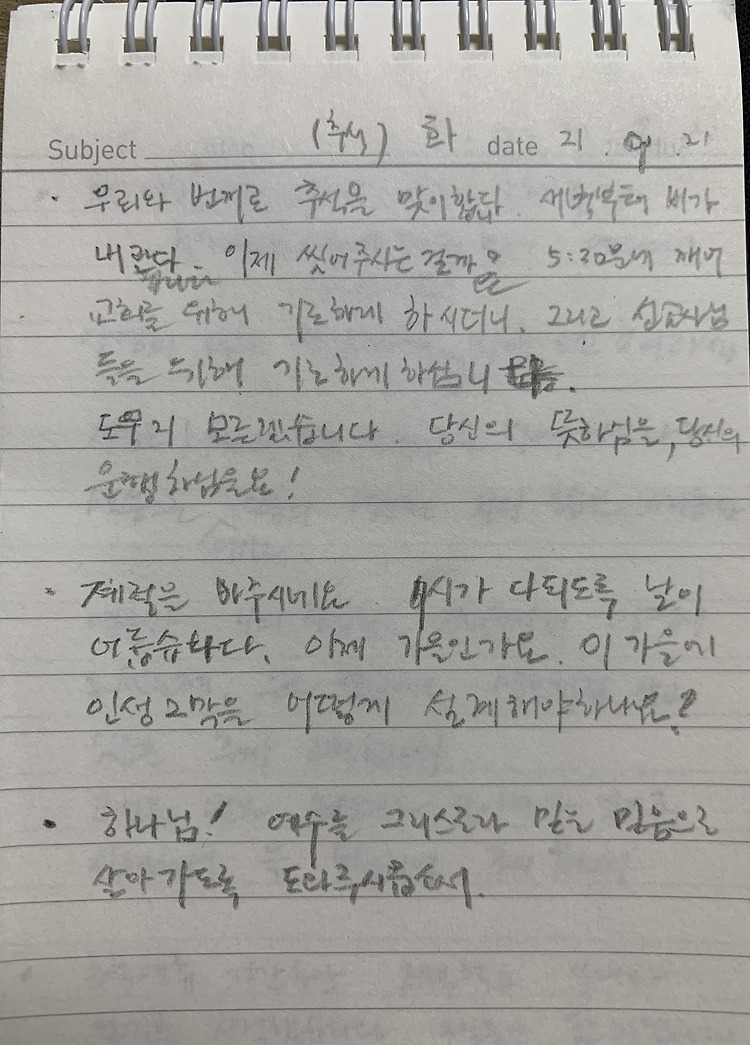 Subject (추석) 화 date 21. 9. 21
· 우리와 번째로 추석을 맞이합다. 새벽부터 비가
내린다. 이제 씻어주시는걸까요 5:30분에 깨어
교회를 위해 기도하게 하시더니. 그리고 선교사님
들을 위해 기도하게 하십니
도무지 모르겠습니다. 당신의 뜻하심을, 당신의
운행하심을요!
· 계획을 바주시네요 시가 다되도록 날이
어둡슙니다. 이제 가을인가요. 이 가을에
인생 2막을 어떻게 설계해야하나요?
· 하나님! 예수를 그리스도라 믿는 믿음으로
살아가도록 도와주시옵소서.